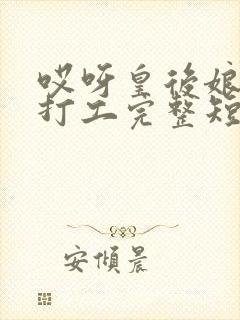 哎呀皇後娘
打工完整短
安傾晨